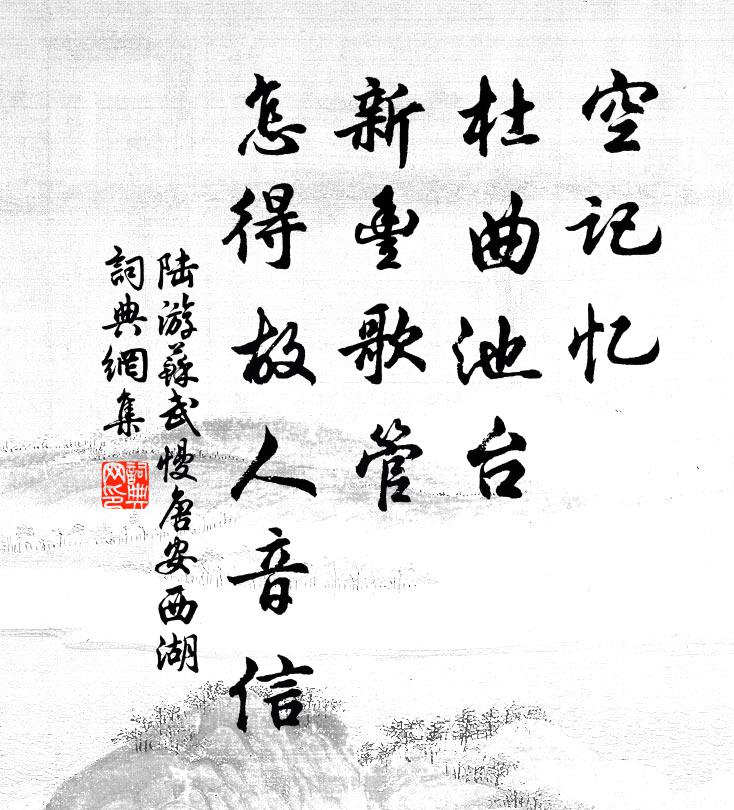 空记忆
杜曲池台
新豊歌管
怎得故人音信
陆游蘇武慢唐安西湖
詞典網集